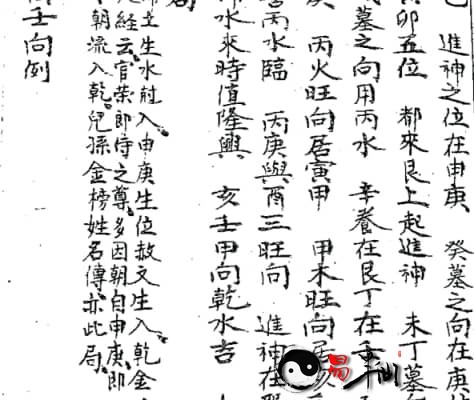 進神之位在申庚　癸墓之向在庚
卯五位　都來艮上起進神　未丁墓
墓之向用丙水　辛養在艮丁在壬
丙火旺向居寅甲　甲木旺向居亥
丙水臨　丙庚與酉三旺向　進神在
水來時值隆興　亥壬甲向乾水吉
生水前入申庚生位故文生入乾金
經云官榮郎侍之尊多因朝自申庚即
朝流入乾兒孫金榜姓名傳亦此局
壬向例
易